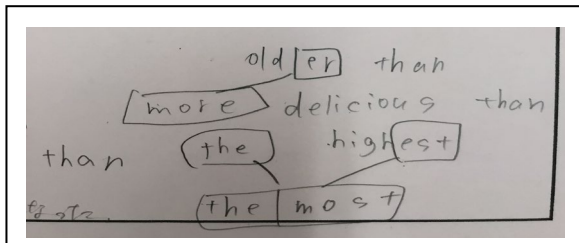 older than
more delicious than
than the highest
the most